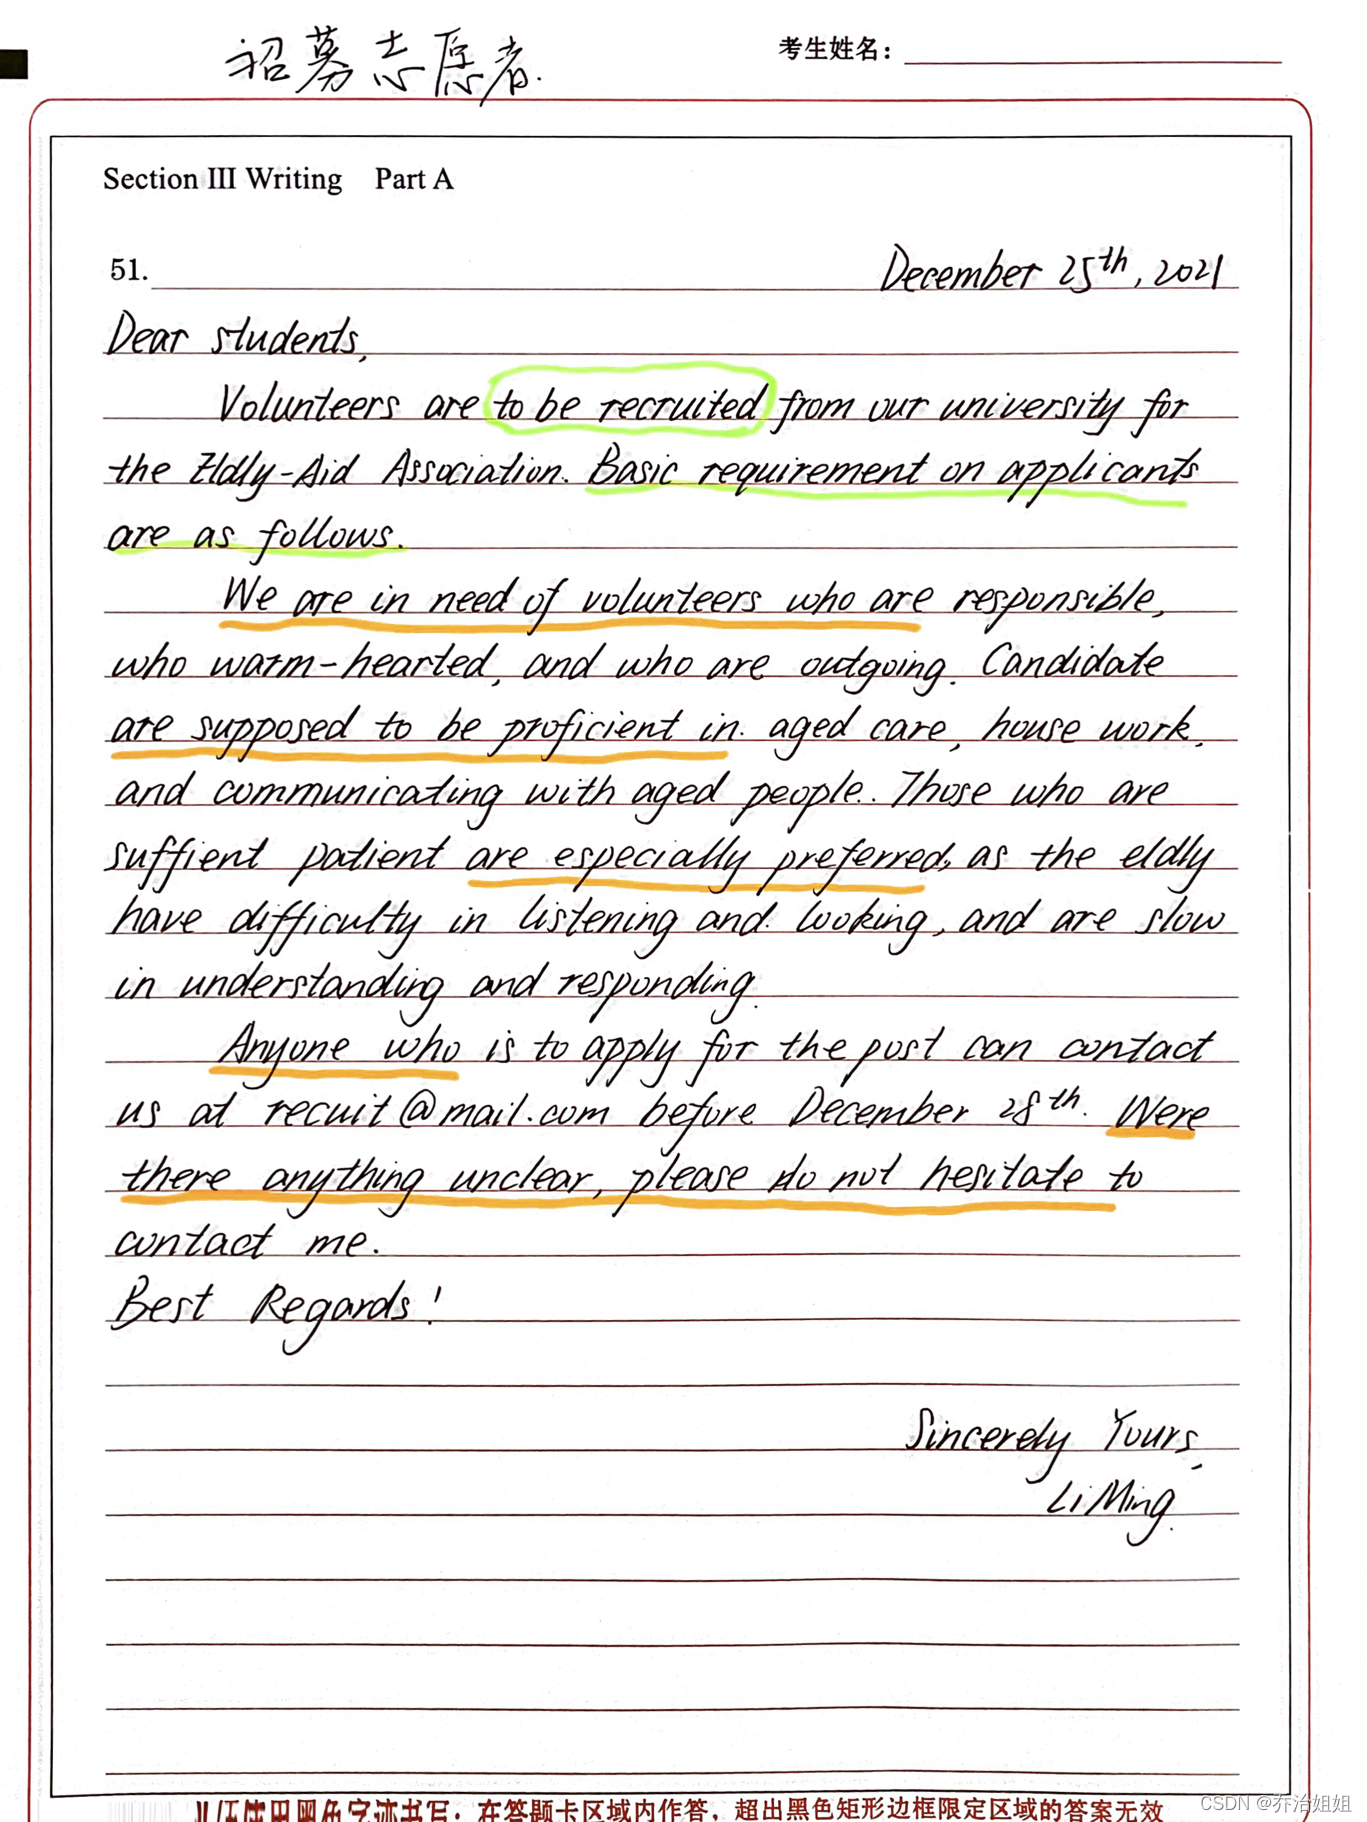 招募志愿者.
考生姓名：
Section III Writing Part A
51.
December 25th, 2021
Dear students,
Volunteers are to be recruited from our university for
the Eldly-Aid Association. Basic requirement on applicants
are as follows.
We are in need of volunteers who are responsible,
who warm-hearted, and who are outgoing. Candidate
are supposed to be proficient in aged care, house work,
and communicating with aged people. Those who are
suffient patient are especially preferred, as the eldly
have difficulty in listening and looking, and are slow
in understanding and responding.
Anyone who is to apply for the post can contact
us at recuit@mail.com before December 28th. Were
there anything unclear, please do not hesitate to
contact me.
Best Regards!
Sincerely Yours,
Li Ming.
必须使用黑色字迹书写；在答题卡区域内作答，超出黑色矩形边框限定区域的答案无效
CSDN @乔治姐姐